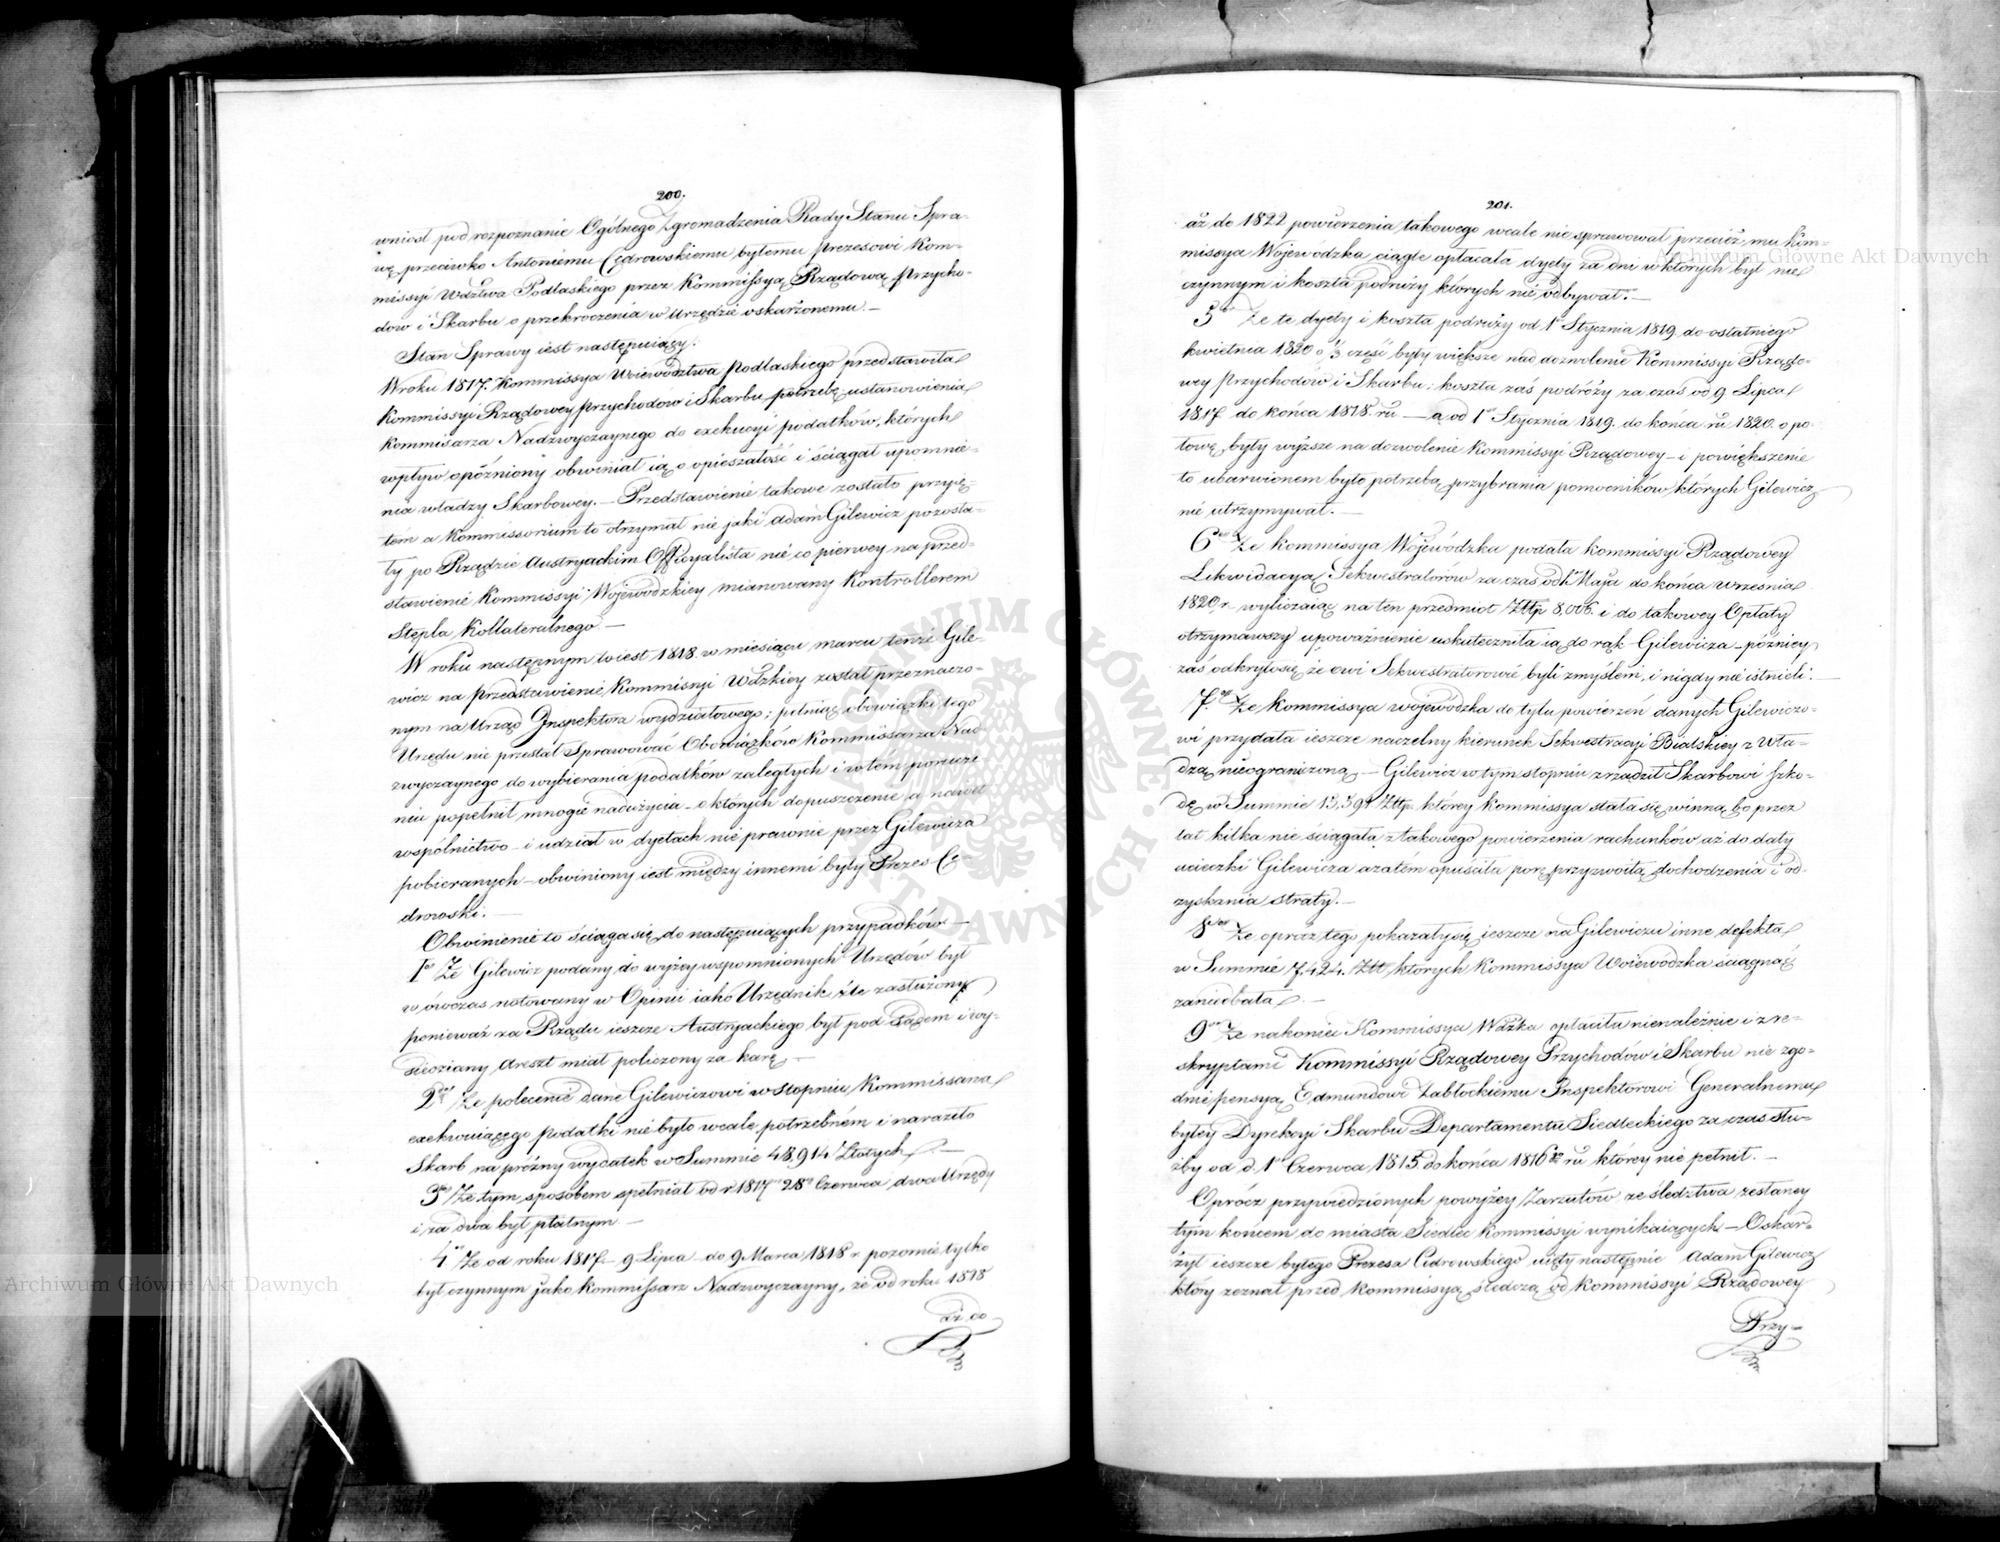 200.
wniosł pod rozpoznanie Ogólnego Zgromadzenia Rady Stanu Spra-
wę przeciwko Antoniemu Cedrowskiemu byłemu prezesowi Kom-
missyi Wdztwa Podlaskiego przez Kommissyą Rządową Przycho-
dow i Skarbu o przekroczenia w urzędzie oskarżonemu. —
Stan Sprawy iest następuiący.
W roku 1817. Kommissya Woiewodztwa Podlaskiego przedstawiła
Kommissyi Rządowey Przychodow i Skarbu potrzebę ustanowienia
Kommisarza Nadzwyczaynego do exekucyi podatków, których
wpływ opóźniony obwiniał ią o opieszałość i ściągał upomnie-
nia władzy Skarbowey. — Przedstawienie takowe zostało przyię-
tém a Kommissorium to otrzymał nie jaki Adam Gilewicz pozosta-
ły po Rządzie Austryackim Officyalista nie co pierwey na przed-
stawienie Kommissyi Wojewódzkiey mianowany Kontrollerem
Stępla Kollateralnego —
W roku następnym to iest 1818. w miesiącu marcu tenże Gile-
wicz na przedstawienie Kommissyi Wdzkiey został przeznaczo-
nym na Urząd Inspektora wydziałowego; pełniąc obowiązki tego
Urzędu nie przestał Sprawować Obowiązków Kommissarza Nad
zwyczaynego do wybierania podatków zaległych i w tém porucze-
niu popełnił mnogie nadużycia — o których dopuszczenie a nawet
wspólnictwo — i udział w dyetach nie prawnie przez Gilewicza
pobieranych — obwiniony iest między innemi były Prezes Ce-
drowski. —
Obwinienie to ściąga się do następuiących przypadków —
1o Że Gilewicz podany do wyżey wspomnionych Urzędów był
w ówczas notowany w Opinii iako Urzędnik źle zasłużony
ponieważ za Rządu ieszcze Austryackiego był pod Sądem i wy-
siedziany Areszt miał policzony za karę —
2o Że polecenie dane Gilewiczowi w stopniu Kommissarza
exekwuiącego podatki nie było wcale potrzebném i naraziło
Skarb na próżny wydatek w Summie 48,914 Złotych. —
3o Że tym sposobem spełniał od r 1817 28o Czerwca dwa Urzędy
i za dwa był płatnym —
4o Że od roku 1817 — 9 Lipca — do 9 Marca 1818 r. pozornie tylko
był czynnym jako Kommissarz Nadzwyczayny, że od roku 1818
aż do
201.
aż do 1822 powierzenia takowego wcale nie sprawował przecież mu Kom-
missya Wojewódzka ciągle opłacała dyety za dni w których był nie
czynnym i koszta podróży których nie odbywał. —
5o Że te dyety i koszta podróży od 1o Stycznia 1819 do ostatniego
kwietnia 1820 o 1/3 część były większe nad dozwolenie Kommissyi Rządo-
wey Przychodów i Skarbu; koszta zaś podróży za czas od 9 Lipca
1817 do końca 1818 ru — a od 1o Stycznia 1819. do końca ru 1820. o po-
łowę były wyższe na dozwolenie Kommissyi Rządowey — i powiększenie
to ubarwionem było potrzebą przybrania pomocników, których Gilewicz
nie utrzymywał. —
6o Że Kommissya Wojewódzka podała Kommissyi Rządowey
Likwidacyą Sekwestratorów za czas od 1o Maja do końca Września
1820 r. wyliczaiąc na ten przedmiot Złtp 8,006. i do takowey Opłaty
otrzymawszy upoważnienie uskuteczniła ią do rąk Gilewicza — późniey
zaś odkryło się, że owi Sekwestratorowie byli zmyśleni, i nigdy nie istnieli. —
7o Że Kommissya Wojewódzka do tylu powierzeń danych Gilewiczo-
wi przydała ieszcze naczelny kierunek Sekwestracyi Bialskiey z Wła-
dzą nieograniczoną — Gilewicz w tym stopniu zrządził Skarbowi szko-
dę w Summie 13,591 Złtp. którey Kommissya stała się winną, bo przez
lat kilka nie ściągała z takowego powierzenia rachunków aż do daty
ucieczki Gilewicza a zatém opuściła porę przyzwoitą dochodzenia i od-
zyskania straty. —
8o Że oprócz tego pokazały się ieszcze na Gilewiczu inne defekta
w Summie 7,424. Złt, których Kommissya Woiewodzka ściągnąć
zaniedbała. —
9o Że nakoniec Kommissya Wdzka opłaciła nienależnie i z re-
skryptami Kommissyi Rządowey Przychodów i Skarbu nie zgo-
dnie pensyą Edmundowi Zabłockiemu Inspektorowi Generalnemu
byłey Dyrekcyi Skarbu Departamentu Siedleckiego za czas służ-
by od d. 1o Czerwca 1815 do końca 1816 ru którey nie pełnił. —
Oprócz przywiedzionych powyżey Zarzutów ze śledztwa zesłaney
tym końcem do miasta Siedlec Kommissyi wynikaiących — Oskar-
żył ieszcze byłego Prezesa Cedrowskiego uięty następnie Adam Gilewicz
który zeznał przed Kommissyą śledczą od Kommissyi Rządowey
Przy-
Archiwum Główne Akt Dawnych
Archiwum Główne Akt Dawnych
ARCHIWUM GŁÓWNE AKT DAWNYCH